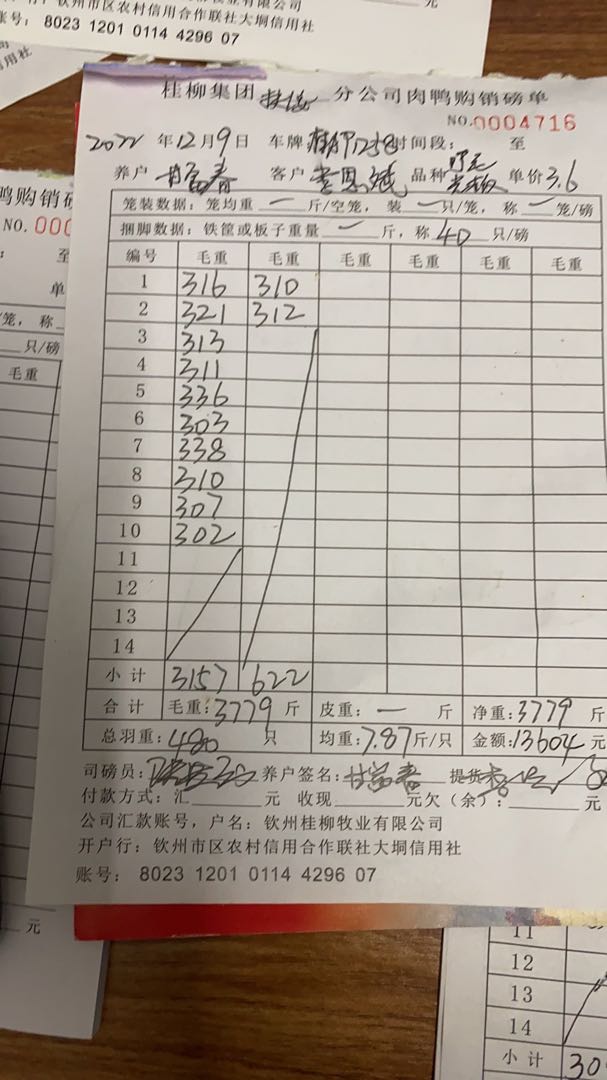 钦州市区农村信用合作联社大垌信用社
账号：8023 1201 0114 4296 07
元
桂柳集团 分公司肉鸭购销磅单
NO.0004716
2022年12月9日 车牌 1258 时间段： 至
养户 甘富春 客户 品种 单价 3.6
笼装数据：笼均重 一 斤/空笼，装 一 只/笼，称 一 笼/磅
捆脚数据：铁筐或板子重量 一 斤，称 40 只/磅
编号 毛重 毛重 毛重 毛重 毛重 毛重
1 316 310
2 321 312
3 313
4 311
5 336
6 303
7 338
8 310
9 307
10 302
11
12
13
14
小计 3157 622
合计 毛重：3779 斤 皮重：一 斤 净重：3779 斤
总羽重：480 只 均重：7.87 斤/只 金额：13604 元
司磅员： 养户签名：甘富春 提货
付款方式：汇 元 收现 元 欠（余）： 元
公司汇款账号，户名：钦州桂柳牧业有限公司
开户行：钦州市区农村信用合作联社大垌信用社
账号：8023 1201 0114 4296 07
鸭购销
NO. 000
至
单
笼，称
只/磅
毛重
元
11
12
13
14
小计 30